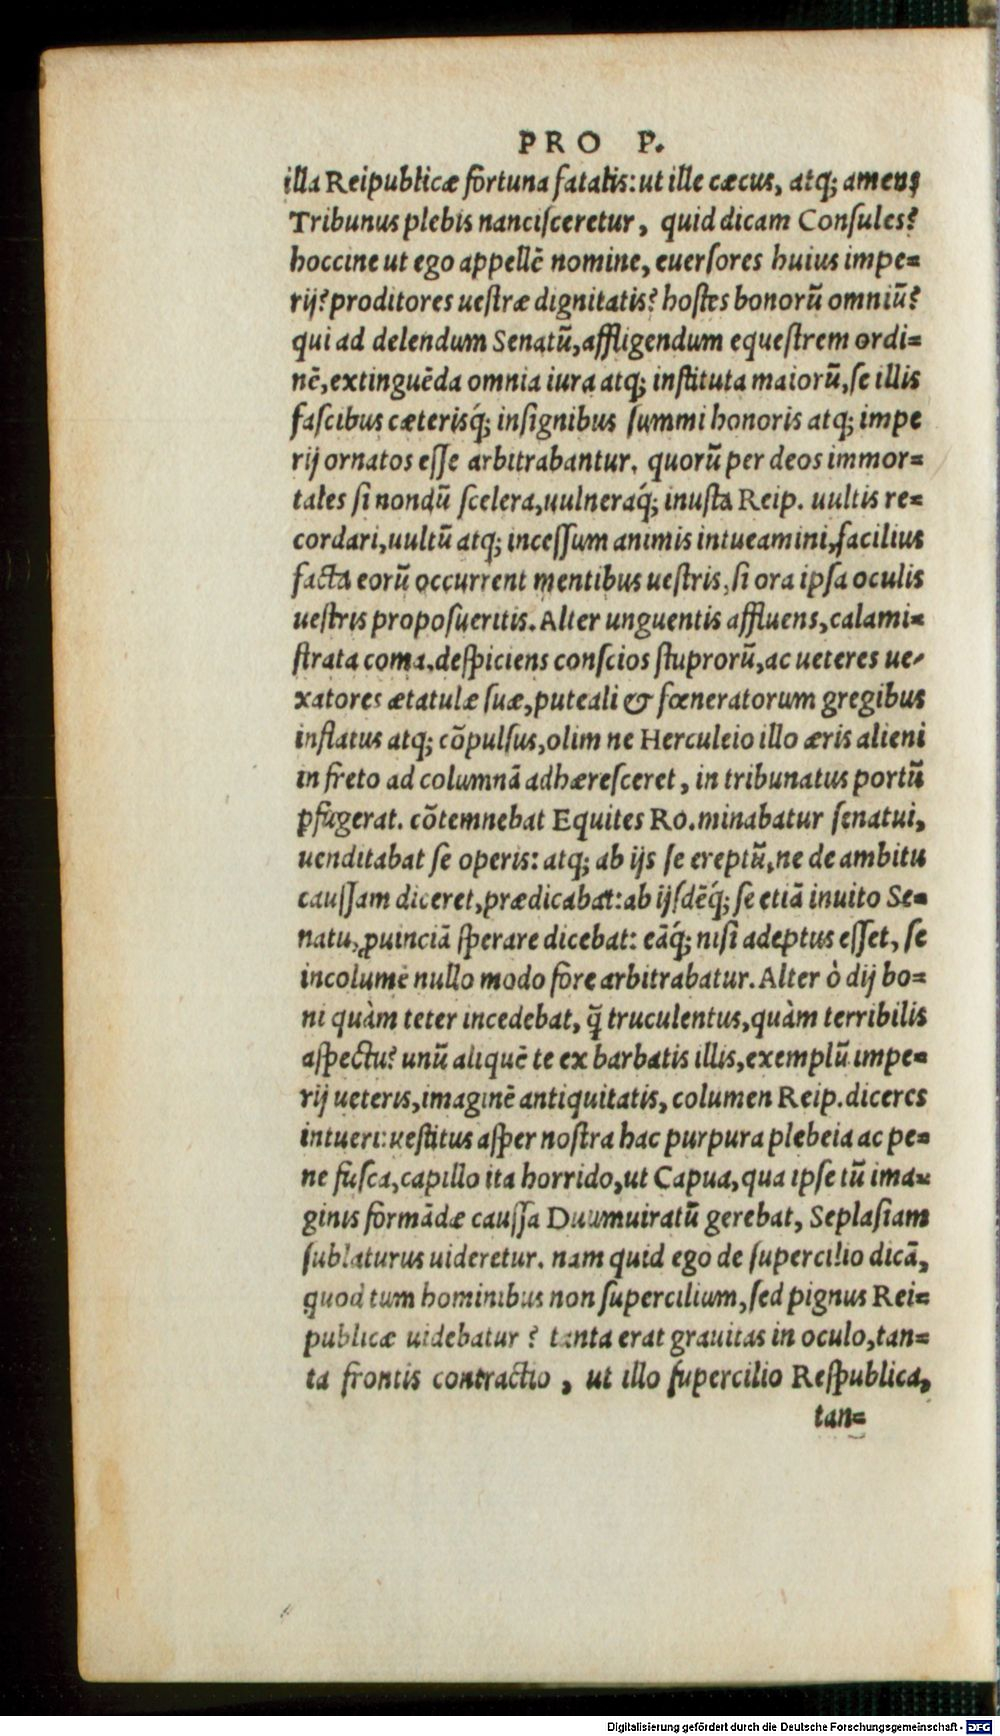 PRO P.
illa Reipublicæ fortuna fatalis: ut ille cæcus, atq; amens
Tribunus plebis nancisceretur, quid dicam Consules?
hoccine ut ego appellē nomine, euersores huius impe=
rij? proditores uestræ dignitatis? hostes bonorū omniū?
qui ad delendum Senatū, affligendum equestrem ordi=
nē, extinguēda omnia iura atq; instituta maiorū, se illis
fascibus cæterisq́; insignibus summi honoris atq; impe
rij ornatos esse arbitrabantur. quorū per deos immor=
tales si nondū scelera, uulneraq́; inusta Reip. uultis re=
cordari, uultū atq; incessum animis intueamini, facilius
facta eorū occurrent mentibus uestris, si ora ipsa oculis
uestris proposueritis. Alter unguentis affluens, calami=
strata coma, despiciens conscios stuprorū, ac ueteres ue-
xatores ætatulæ suæ, puteali & fœneratorum gregibus
inflatus atq; cōpulsus, olim ne Herculeio illo æris alieni
in freto ad columnā adhæresceret, in tribunatus portū
ꝑfugerat. cōtemnebat Equites Ro. minabatur senatui,
uenditabat se operis: atq; ab ijs se ereptū, ne de ambitu
caussam diceret, prædicabat: ab ijsdēq́; se etiā inuito Se=
natu, ꝓuinciā sperare dicebat: eāq́; nisi adeptus esset, se
incolumē nullo modo fore arbitrabatur. Alter ò dij bo=
ni quàm teter incedebat, q̄̃ truculentus, quàm terribilis
aspectu? unū aliquē te ex barbatis illis, exemplū impe=
rij ueteris, imaginē antiquitatis, columen Reip. diceres
intueri: uestitus asper nostra hac purpura plebeia ac pe=
ne fusca, capillo ita horrido, ut Capua, qua ipse tū ima=
ginis formādæ caussa Duumuiratū gerebat, Seplasiam
sublaturus uideretur. nam quid ego de supercilio dicā,
quod tum hominibus non supercilium, sed pignus Rei=
publicæ uidebatur? tanta erat grauitas in oculo, tan=
ta frontis contractio, ut illo supercilio Respublica,
tan=
Digitalisierung gefördert durch die Deutsche Forschungsgemeinschaft - DFG